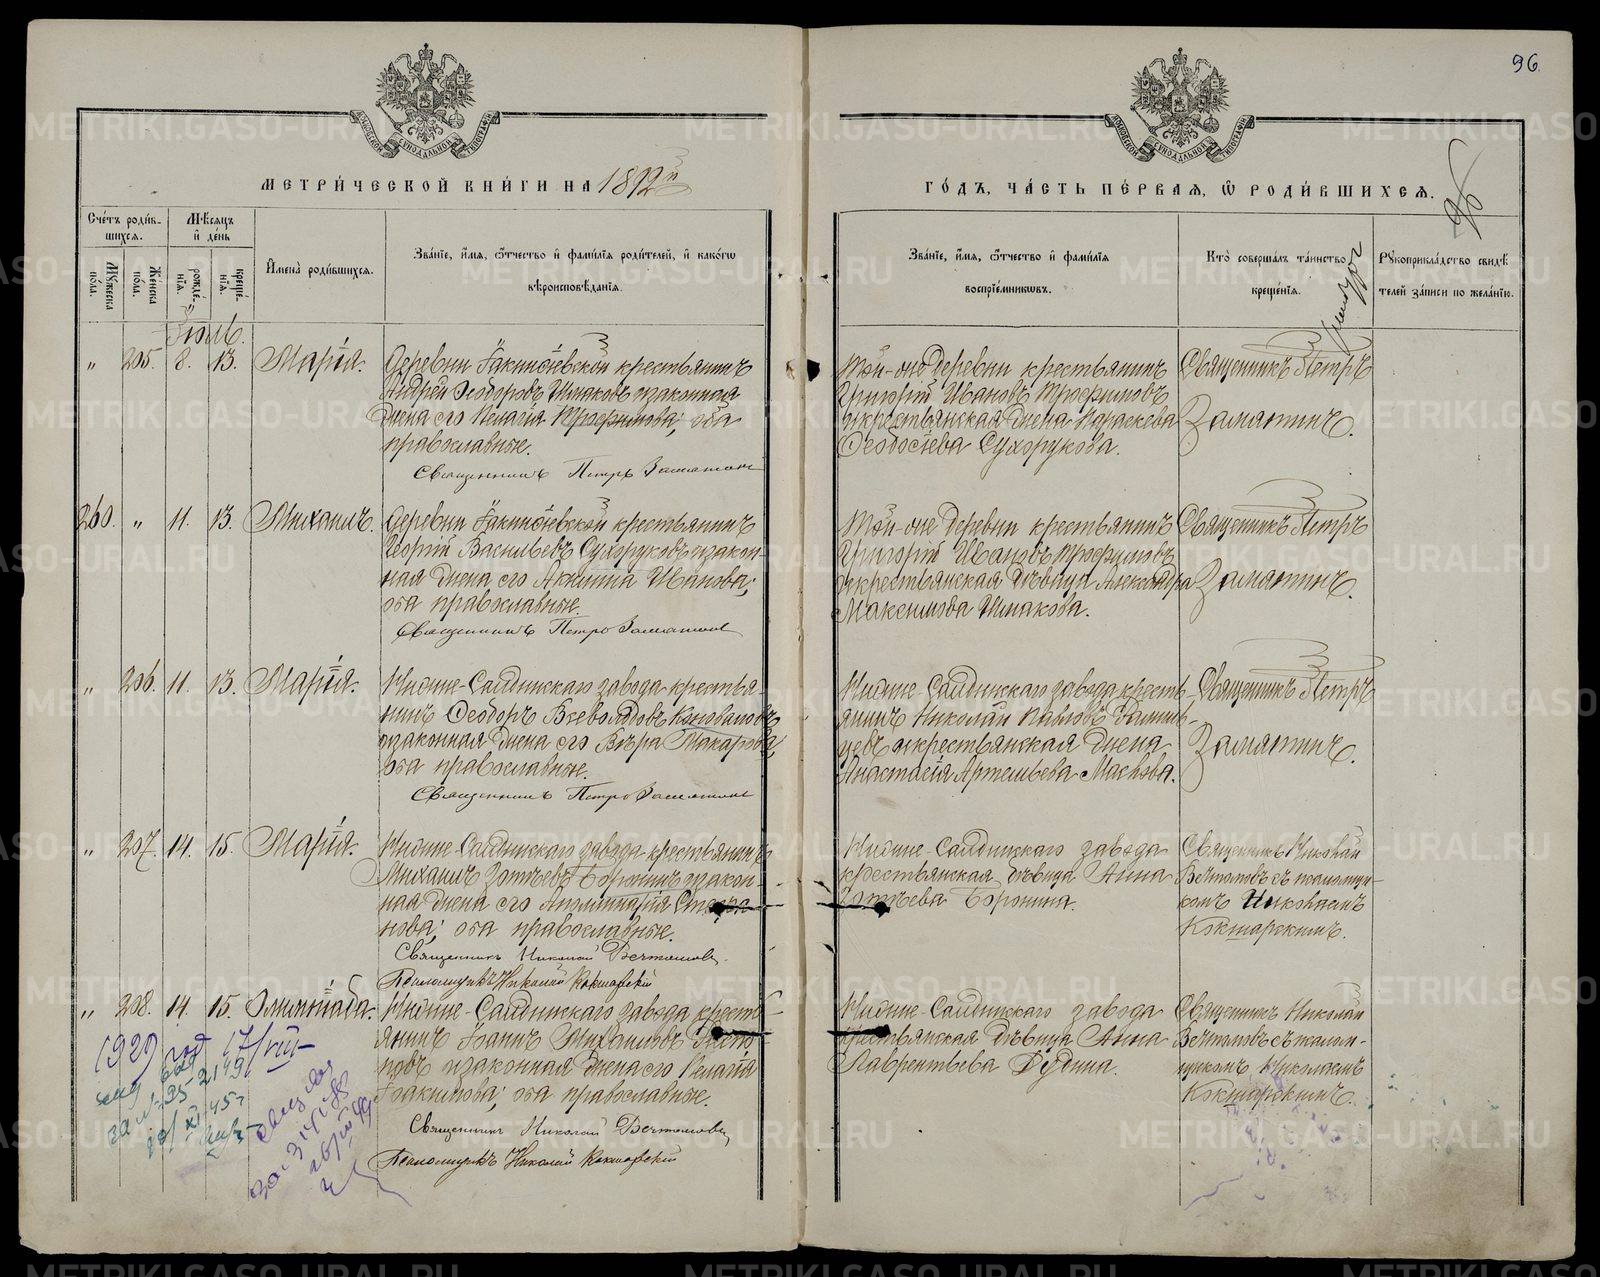 96.
МЕТРИ́ЧЕСКОЙ КНИ́ГИ НА 1892й
ГО́ДЪ, ЧА́СТЬ ПЕ́РВАЯ, Ѡ РОДИ́ВШИХСЯ.
96
Сче́тъ роди́в-
шихся.
Мꙋжеска по́ла.
Же́нска по́ла.
Мѣ́сяцъ
и҆ де́нь
рожде́-
нїѧ.
креще́-
нїѧ.
И҆мена̀ роди́вшихсѧ.
Зва́нїе, и҆́мѧ, ѻ҆́тчество и҆ фами́лїѧ роди́телей, и҆ како́гѡ
вѣроисповѣ́данїѧ.
Зва́нїе, и҆́мѧ, ѻ҆́тчество и҆ фами́лїѧ
воспрїе́мникѡвъ.
Кто̀ соверша́лъ та́инство
креще́нїѧ.
Рꙋкоприкла́дство свидѣ́-
телей за́писи по жела́нїю.
Іюль.
„ 205. 8. 13. Марія.
Деревни Іакинѳіевской крестьянинъ
Андрей Ѳеодоровъ Шмаковъ и законная
жена его Пелагія Трофимова; оба
православные.
Священникъ Петръ Замятинъ
Той-же деревни крестьянинъ
Григорій Ивановъ Трофимовъ
и крестьянская жена Параскева
Ѳеодосіева Сухорукова.
Священникъ Петръ
Замятинъ.
260. „ 11. 13. Михаилъ.
Деревни Іакинѳіевской крестьянинъ
Георгій Васильевъ Сухоруковъ и закон-
ная жена его Акилина Иванова;
оба православные.
Священникъ Петръ Замятинъ
Той-же деревни крестьянинъ
Григорій Ивановъ Трофимовъ
и крестьянская дѣвица Александра
Максимова Шмакова.
Священникъ Петръ
Замятинъ.
„ 206. 11. 13. Марія.
Нижне-Салдинскаго завода крестья-
нинъ Ѳеодоръ Всеволодовъ Коноваловъ
и законная жена его Вѣра Макарова,
оба православные.
Священникъ Петръ Замятинъ
Нижне-Салдинскаго завода кресть-
янинъ Николай Павловъ
и крестьянская жена
Анастасія Артемьева Маслова.
Священникъ Петръ
Замятинъ.
„ 207. 14. 15. Марія.
Нижне-Салдинскаго завода крестьянинъ
Михаилъ Зотѣевъ Боронинъ и закон-
ная жена его Аполлинарія
нова; оба православные.
Священникъ Николай Вечтомовъ.
Псаломщикъ Николай Кокшарскій
Нижне-Салдинскаго завода
крестьянская дѣвица Анна
Зотѣева Боронина.
Священникъ Николай
Вечтомовъ съ псаломщи-
комъ Николаемъ
Кокшарскимъ.
„ 208. 14. 15. Олимпіада.
Нижне-Салдинскаго завода кресть-
янинъ Іоаннъ Михаиловъ
и законная жена его Пелагія
Іоакимова; оба православные.
Священникъ Николай Вечтомовъ
Псаломщикъ Николай Кокшарскій
Нижне-Салдинскаго завода
крестьянская дѣвица Анна
Лаврентьева Дудина.
Священникъ Николай
Вечтомовъ съ псалом-
щикомъ Николаемъ
Кокшарскимъ.